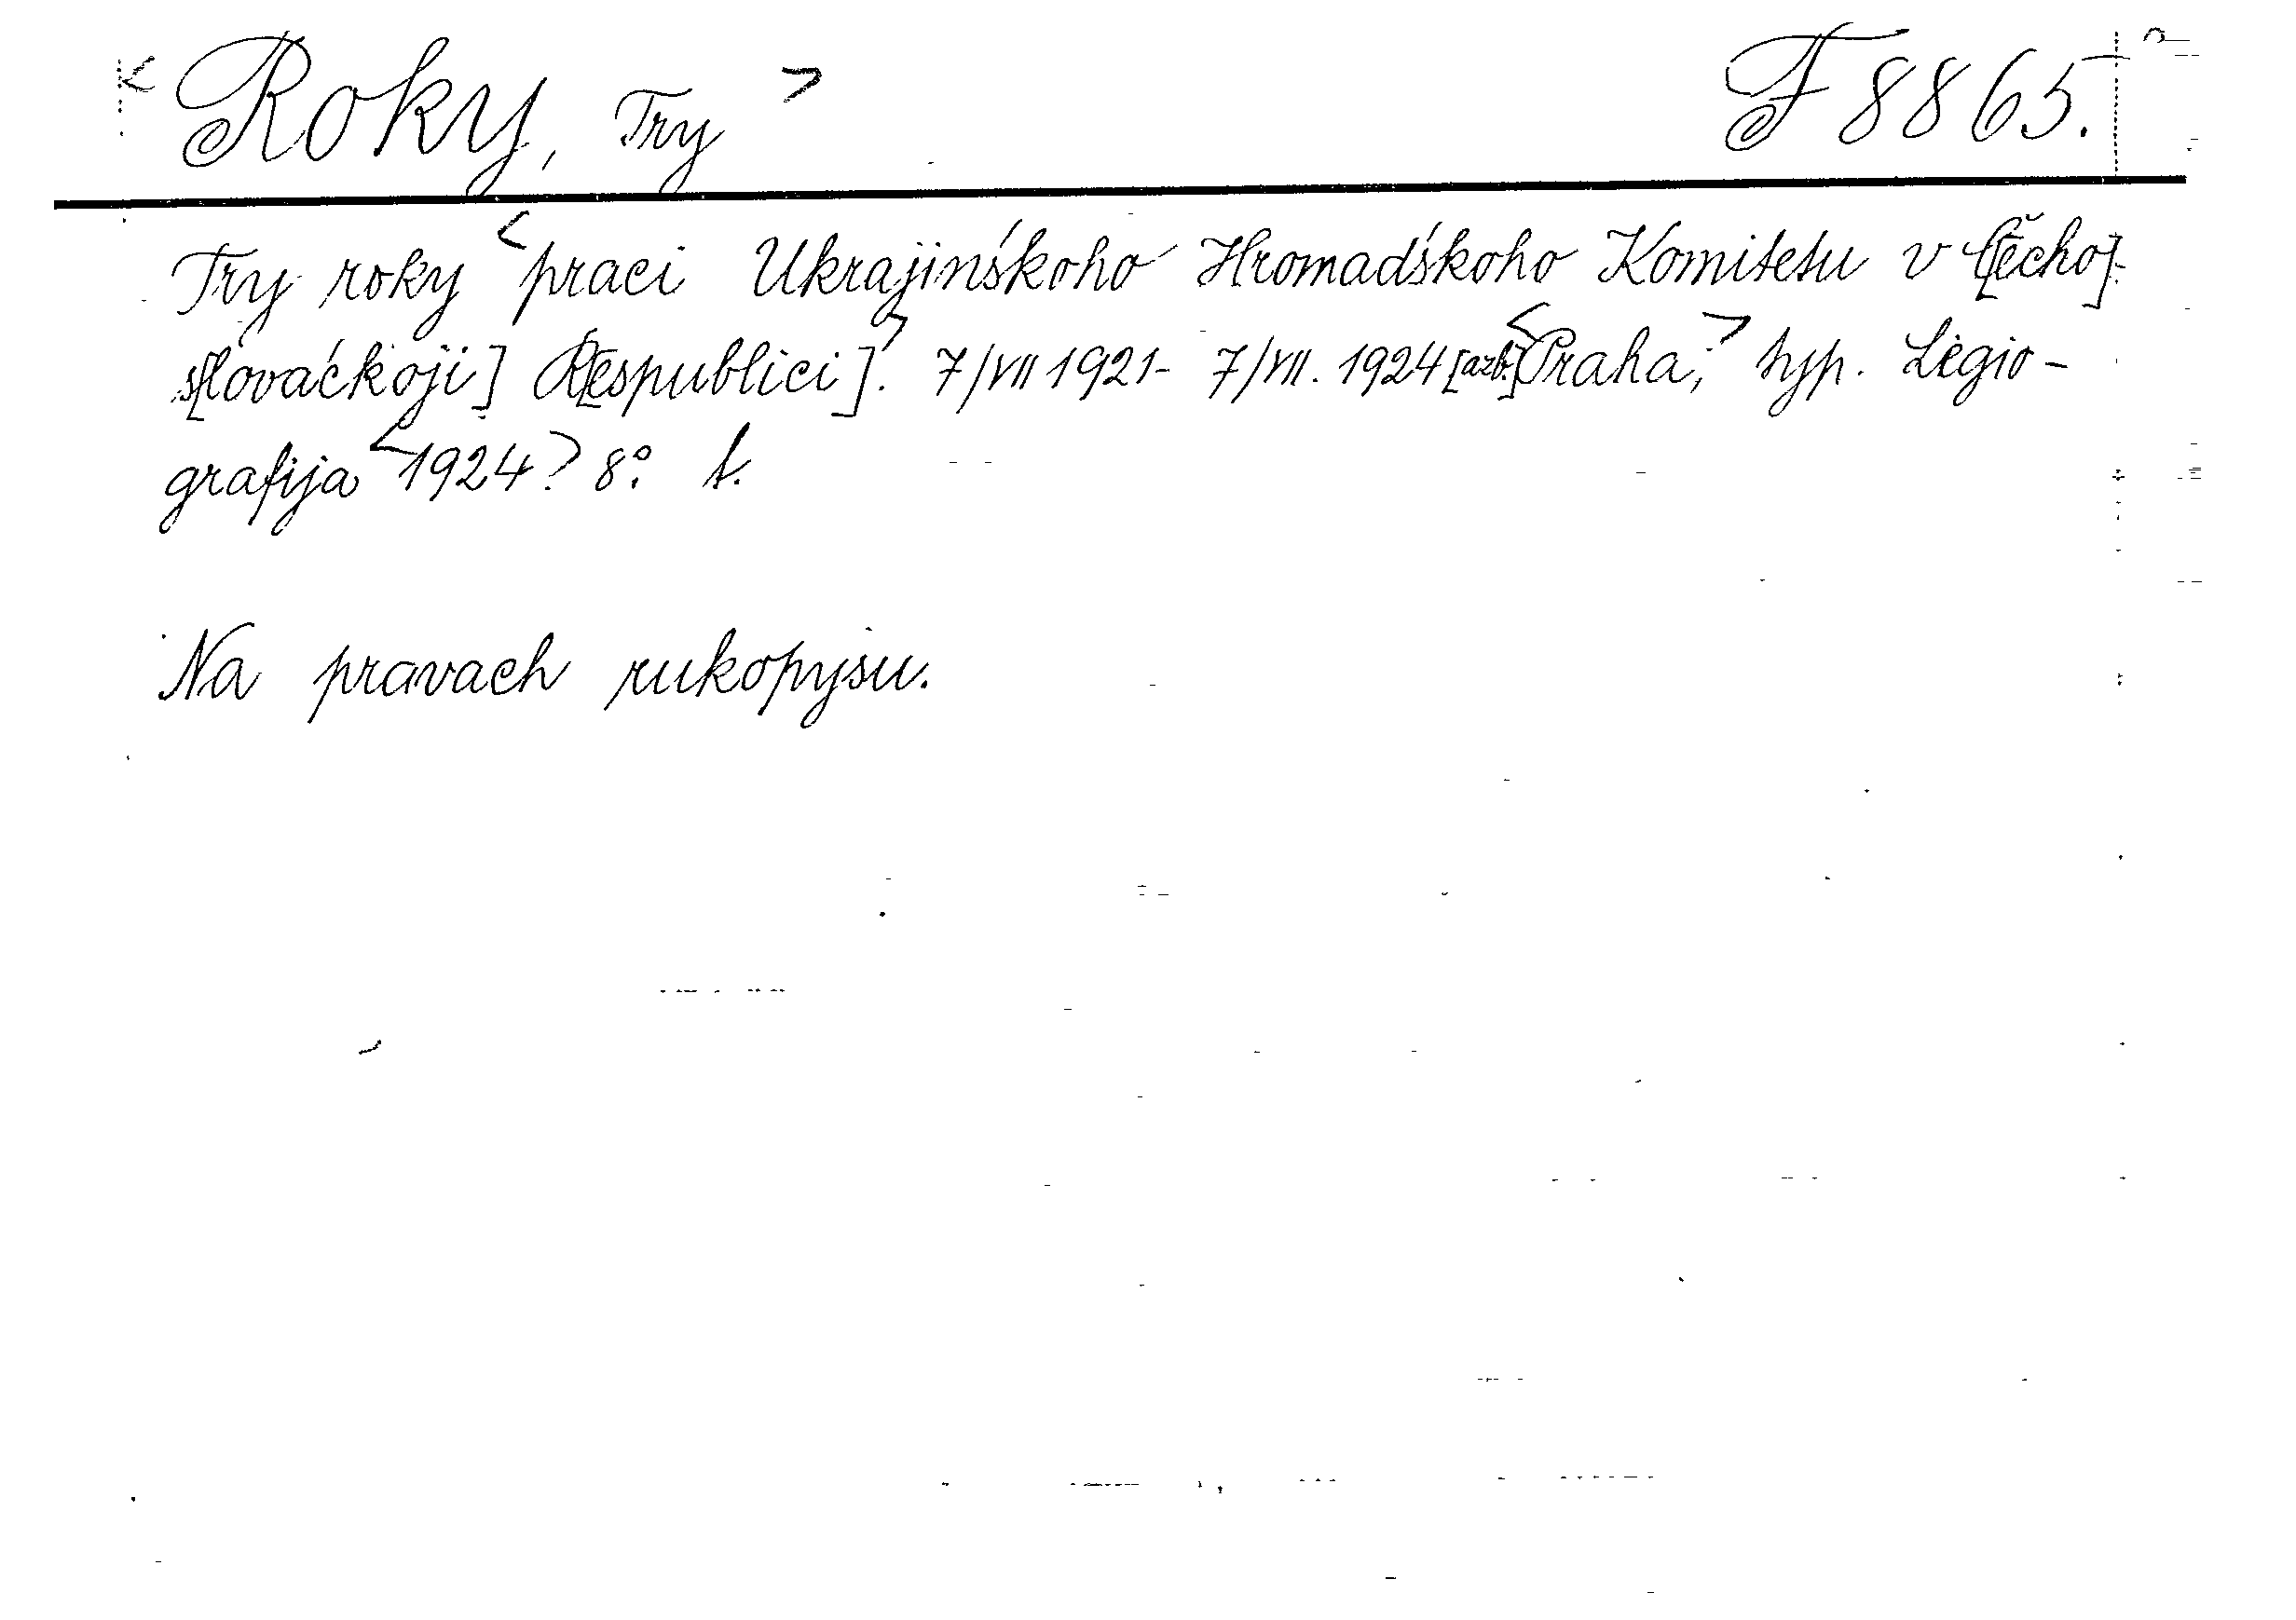 <Roky, Try> F 8865.
Try roky <praci Ukrajinśkoho Hromadśkoho Komitetu v Č[echo]-
s[lovaćkoji] R[espublici].> 7/VII 1921- 7/VII. 1924 [azb.] <Praha,> typ. Legio-
grafija <1924> 8°. t.
Na pravach rukopysu.